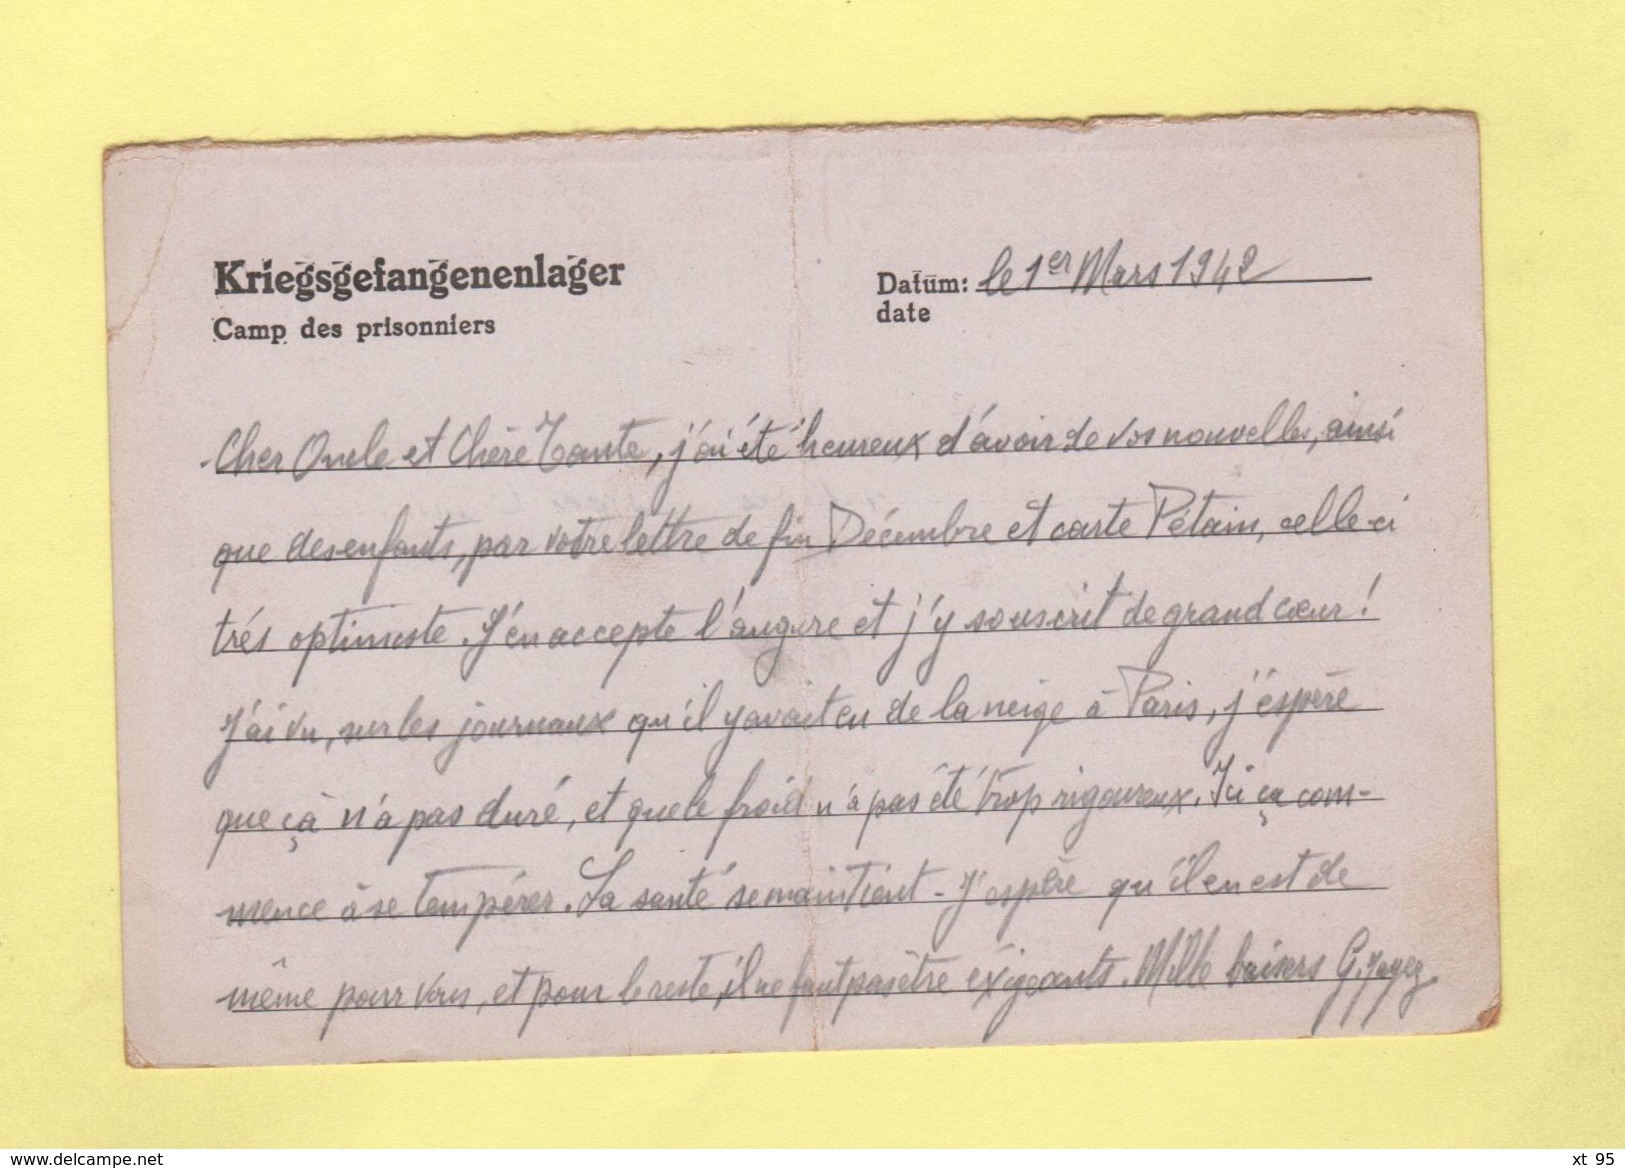 Kriegsgefangenenlager
Camp des prisonniers
Datum: le 1er Mars 1942
date
Cher Oncle et Chère Tante, j'ai été heureux d'avoir de vos nouvelles, ainsi
que des enfants, par votre lettre de fin Décembre et carte Pétain, celle-ci
trés optimiste. J'en accepte l'augure et j'y souscrit de grand cœur!
J'ai vu, sur les journaux qu'il y avait eu de la neige à Paris, j'éspère
que çà n'a pas duré, et que le froid n'a pas été trop rigoureux. Ici ça com-
mence à se tempérer. La santé se maintient - J'espère qu'il en est de
même pour vous, et pour le reste, il ne faut pas être exigeants. Mille baisers G.
www.delcampe.net
xt 95